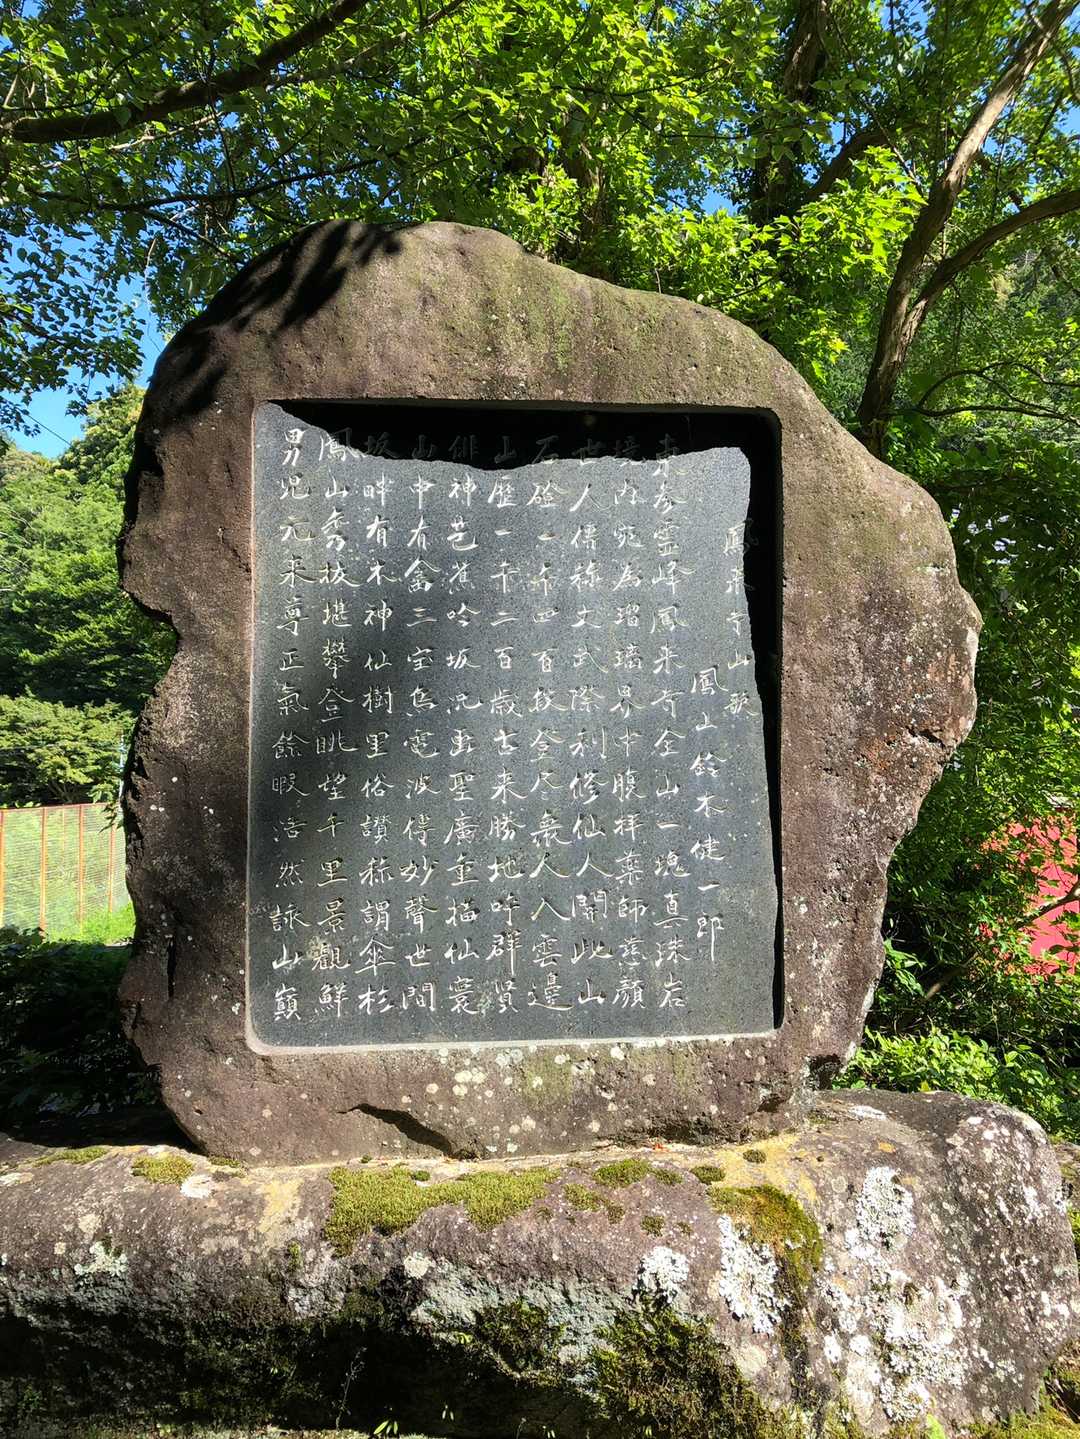 鳳来寺山歌
鳳山 鈴木健一郎
東参霊峰鳳来寺全山一塊真珠岩
境内宛為瑠璃界中腹拝薬師慈顔
世人傳稱文武際利修仙人開此山
石磴一千四百段登尽衆人入雲邊
山歴一千二百歳古来勝地呼群賢
俳神芭蕉吟坂況画聖廣重描仙寰
山中有禽三宝鳥電波傳妙聲世間
坂畔有木神仙樹里俗讃稱謂傘杉
鳳山秀抜堪攀登眺望千里景觀鮮
男児元来尊正氣餘暇浩然詠山巓